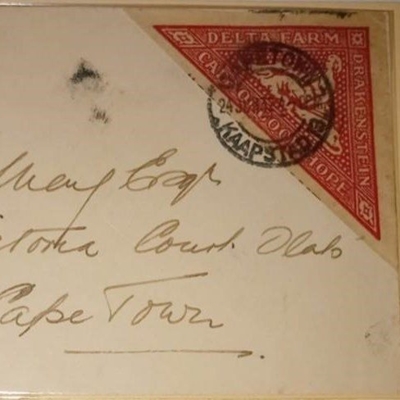 DELTA FARM
DRAKENSTEIN
CAPE OF GOOD HOPE
CAPE TOWN
KAAPSTAD
Esqr
Victoria Court Flats
Cape Town